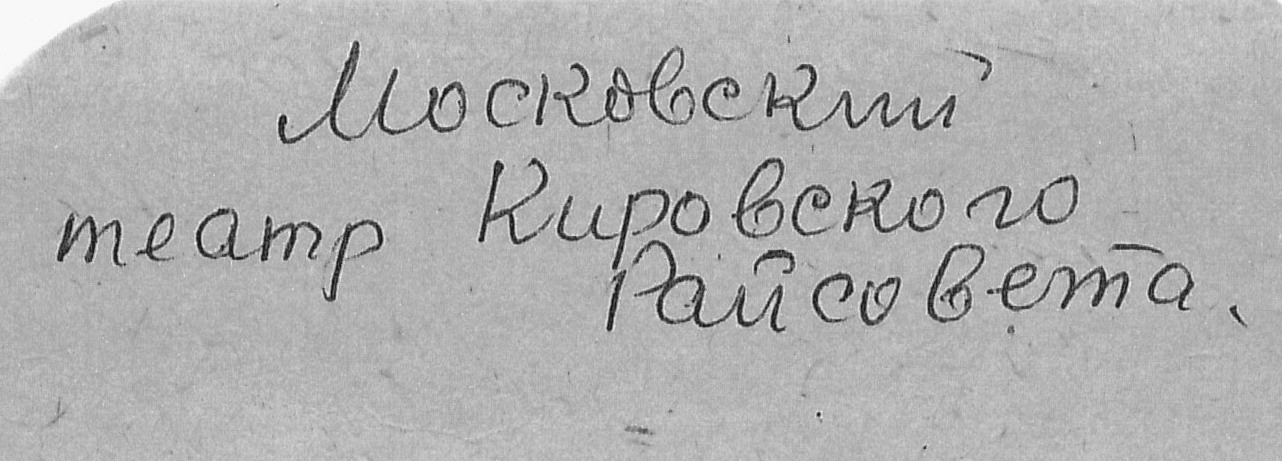 Московский
театр Кировского
Райсовета.